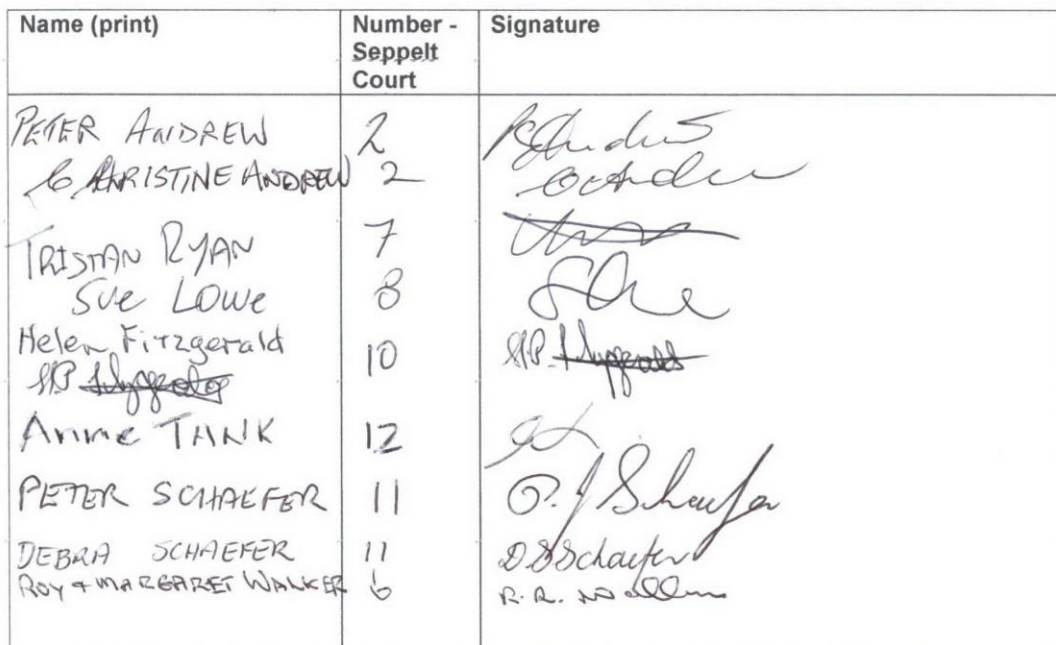 Name (print) Number - Seppelt Court Signature
PETER ANDREW 2
CHRISTINE ANDREW 2
TRISTAN RYAN 7
SUE LOWE 8
Helen Fitzgerald 10
H.P. Fitzgerald
Anne TANK 12
PETER SCHAEFER 11 P. J Schaefer
DEBRA SCHAEFER 11 D S Schaefer
ROY + MARGARET WALKER 6 R. R. Walker